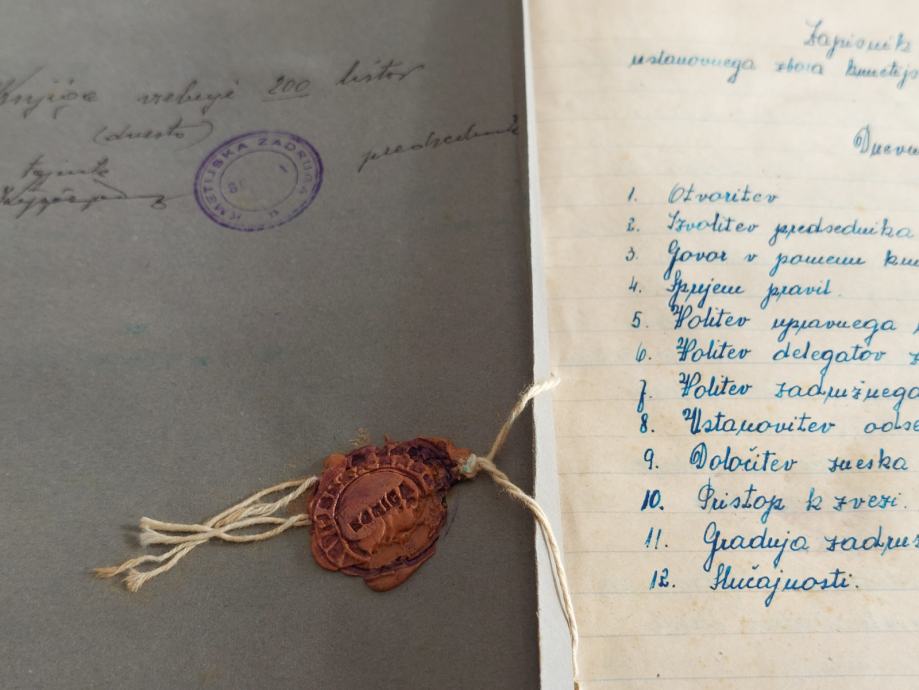 Knjiga vsebuje 200 listov
(dvesto)
tajnik
predsednik
KMETIJSKA ZADRUGA
Zapisnik
ustanovnega zbora kmetijs
Dnevn
1. Otvoritev
2. Izvolitev predsednika
3. Govor v pomenu km
4. Sprejem pravil.
5. Volitev upravnega
6. Volitev delegatov z
7. Volitev zadružnega
8. Ustanovitev odse
9. Določitev zneska
10. Pristop k zvezi.
11. Gradnja zadruž
12. Slučajnosti.